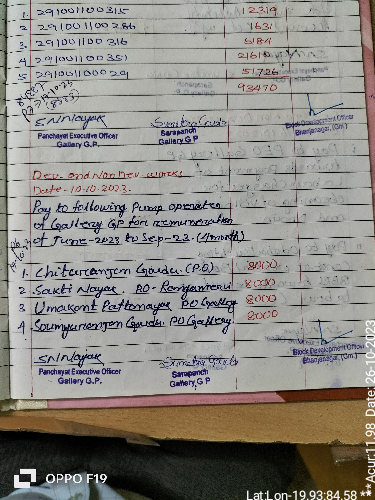 1. 291001100315 12319
2 291001100286 7631
3 291001100316 5184
4 291001100351 21610
5 291061000029 51726
93470
SNNayak
Panchayat Executive Officer
Gallery G.P.
Sarapanch
Gallery G.P
Block Development Officer
Bhanjanagar, (Gm.)
Dev. and Non Dev. works
Date-10.10.2023.
Pay to following Pump operator
of Gallery GP for remuneration
of June-2023 to Sep-23. (4 month)
1. Chitaranjan Gouda. (P.O) 8000
2 Sakti Nayak. PO- 8000
3 Umakant Pattanayak PO Gallery 8000
4 Soumyaranjan Gouda. PO Gallery 8000
SNNayak
Panchayat Executive Officer
Gallery G.P.
Sarapanch
Gallery, G.P
Block Development Officer
Bhanjanagar, (Gm.)
OPPO F19
Lat:Lon-19.93:84.58
**Acur:11.98 Date:26-10-2023